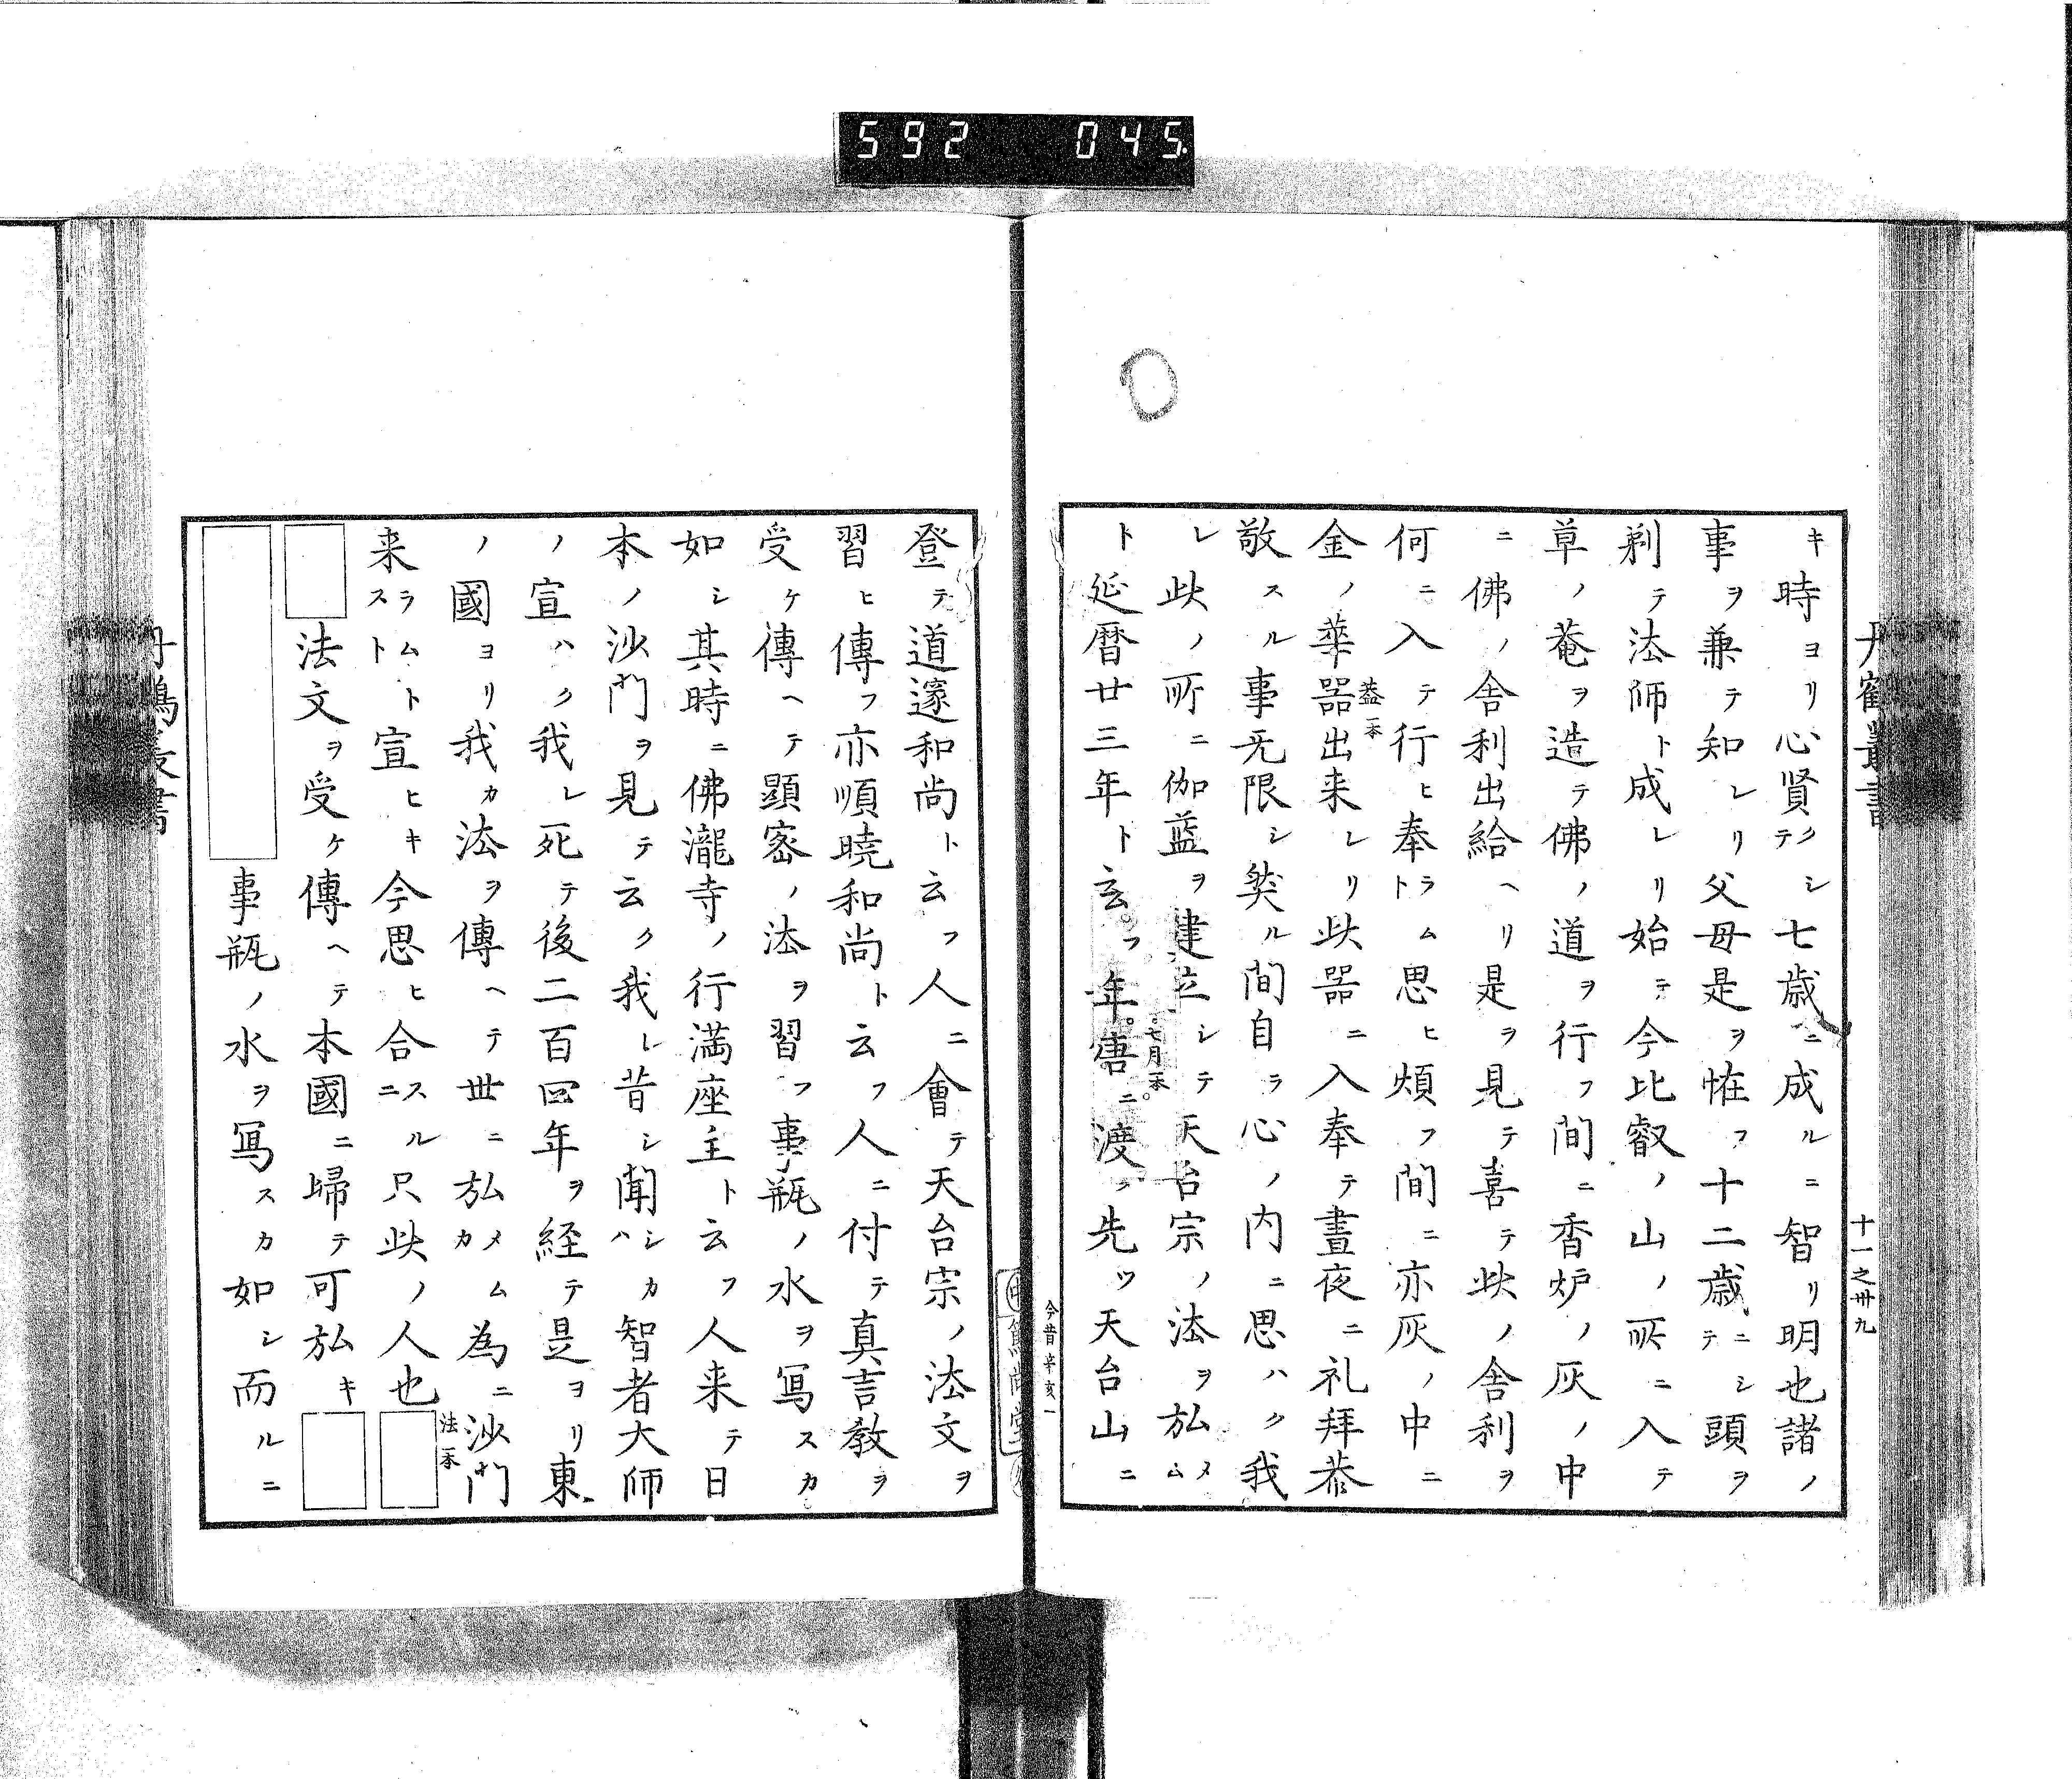 592 045
十一之卅九
キ時ヨリ心賢クシテ七歳ニ成ルニ智リ明也諸ノ
事ヲ兼テ知レリ父母是ヲ恠フ十二歳ニシテ頭ヲ
剃テ法師ト成レリ始テ今比叡ノ山ノ所ニ入テ
草ノ菴ヲ造テ佛ノ道ヲ行フ間ニ香炉ノ灰ノ中
ニ佛ノ舎利出給ヘリ是ヲ見テ喜テ此ノ舎利ヲ
何ニ入テ行ヒ奉ラムト思ヒ煩フ間ニ亦灰ノ中ニ
金ノ華器出来レリ此器ニ入奉テ晝夜ニ礼拜恭
蓋一本
敬スル事无限シ然ル間自ラ心ノ内ニ思ハク我
レ此ノ所ニ伽藍ヲ建立シテ天台宗ノ法ヲ弘メム
ト延暦廿三年ト云フ年唐ニ渡ク先ツ天台山ニ
七月一本
今昔辛亥一
登テ道邃和尚ト云フ人ニ會テ天台宗ノ法文ヲ
習ヒ傳フ亦順曉和尚ト云フ人ニ付テ真言教ヲ
受ケ傳ヘテ顕密ノ法ヲ習フ事瓶ノ水ヲ寫スカ
如シ其時ニ佛瀧寺ノ行満座主ト云フ人来テ日
本ノ沙門ヲ見テ云ク我レ昔シ聞シカハ智者大師
ノ宣ハク我レ死テ後二百四年ヲ経テ是ヨリ東
ノ國ヨリ我カ法ヲ傳ヘテ世ニ弘メムカ為ニ沙門
来ラムトスト宣ヒキ今思ヒ合スルニ只此ノ人也
法一本
法文ヲ受ケ傳ヘテ本國ニ帰テ可弘キ
事瓶ノ水ヲ寫スカ如シ而ルニ